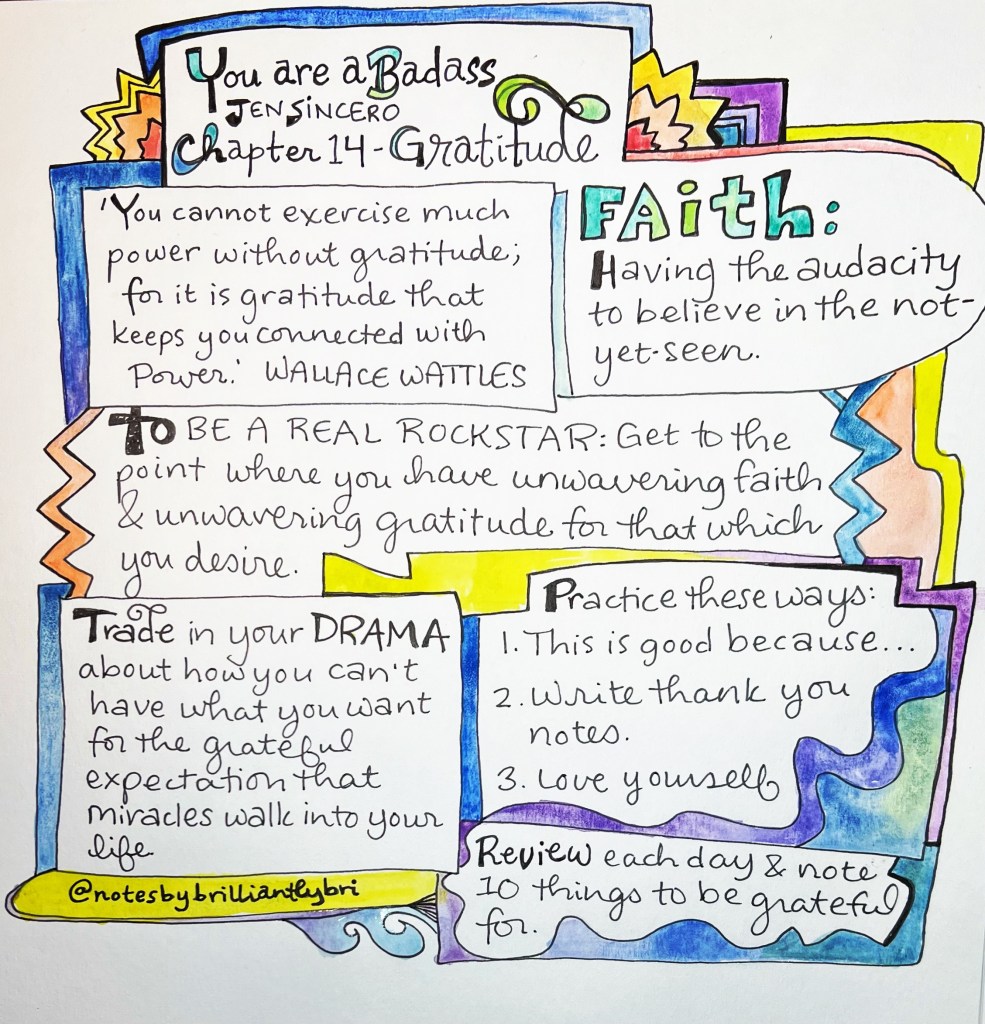 You are a Badass
JEN SINCERO
Chapter 14 - Gratitude
'You cannot exercise much
power without gratitude;
for it is gratitude that
keeps you connected with
Power.' WALLACE WATTLES
FAith:
Having the audacity
to believe in the not-
yet-seen.
To BE A REAL ROCKSTAR: Get to the
point where you have unwavering faith
& unwavering gratitude for that which
you desire.
Trade in your DRAMA
about how you can't
have what you want
for the grateful
expectation that
miracles walk into your
life.
@notesbybrilliantlybri
Practice these ways:
1. This is good because...
2. Write thank you
notes.
3. Love yourself
Review each day & note
10 things to be grateful
for.